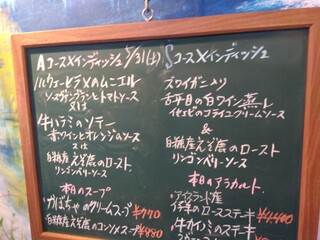 Aコース メインディッシュ 5/31(土)
ハルウェーヒラメのムニエル
ソースヴァンブランとトマトソース
又は
牛ハラミのソテー
赤ワインとオレンジのソース
又は
白糠産えぞ鹿のロースト
リンゴンベリーソース
本日のスープ
かぼちゃのクリームスープ ¥770
白糠産えぞ鹿のコンソメスープ ¥880
Sコース メインディッシュ
ズワイガニ入り
舌平目の白ワイン蒸し
イセエビのコライユクリームソース
&
白糠産えぞ鹿のロースト
リンゴンベリーソース
本日のアラカルト
アイルランド産
仔羊のロースステーキ ¥4,400
牛カイノミのステーキ